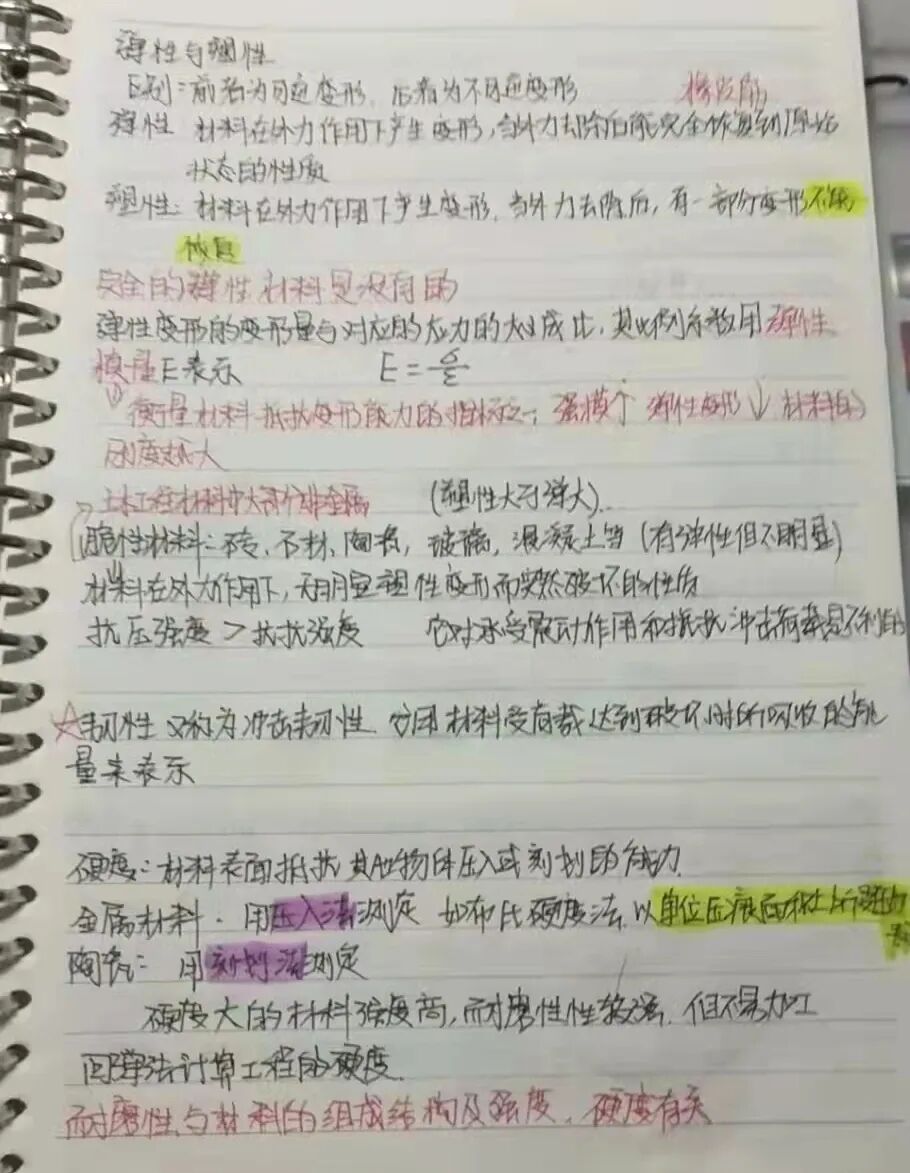 弹性与塑性
区别：前者为可逆变形，后者为不可逆变形
弹性 材料在外力作用下产生变形，当外力去除后能完全恢复到原始
状态的性质
塑性：材料在外力作用下产生变形，当外力去除后，有一部分变形不能
恢复
完全的弹性材料是没有的
弹性变形的变形量与对应的应力的大小成比，其比例系数用弹性
模量E表示 E=σ/ε
衡量材料抵抗变形能力的指标之一，弹模个 弹性变形↓ 材料的
刚度越大
土木工程材料中大部分非金属 (塑性大于弹大)
脆性材料：砖，石材，陶瓷，玻璃，混凝土等 (有弹性但不明显)
材料在外力作用下，无明显塑性变形而突然破坏的性质
抗压强度 > 抗抗强度 它对承受震动作用和抵抗冲击荷载是不利的
☆韧性 又称为冲击韧性 材料受荷载达到破坏时所吸收的能
量来表示
硬度：材料表面抵抗其他物体压入或刻划的能力
金属材料：用压入法测定 如布氏硬度法，以单位压痕面积上所
陶瓷：用刻划法测定
硬度大的材料强度高，而耐磨性性较强，但不易加工
回弹法计算工程的硬度
而耐磨性与材料的组成结构及强度，硬度有关